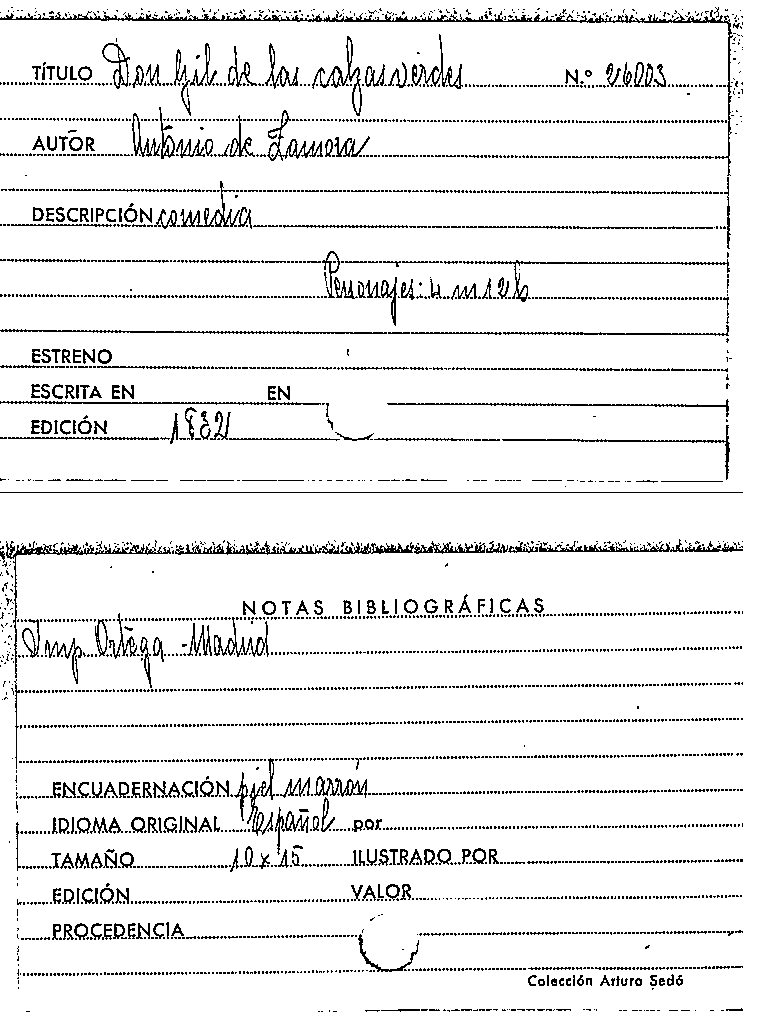 TÍTULO Don Gil de las calzas verdes N.º 26003
AUTOR Antonio de Zamora
DESCRIPCIÓN comedia
Personajes: 4 m 12 h
ESTRENO
ESCRITA EN EN
EDICIÓN 1832
NOTAS BIBLIOGRÁFICAS
Imp Ortega - Madrid
ENCUADERNACIÓN piel marrón
IDIOMA ORIGINAL Español por
TAMAÑO 10 x 15 ILUSTRADO POR
EDICIÓN VALOR
PROCEDENCIA
Colección Arturo Sedó